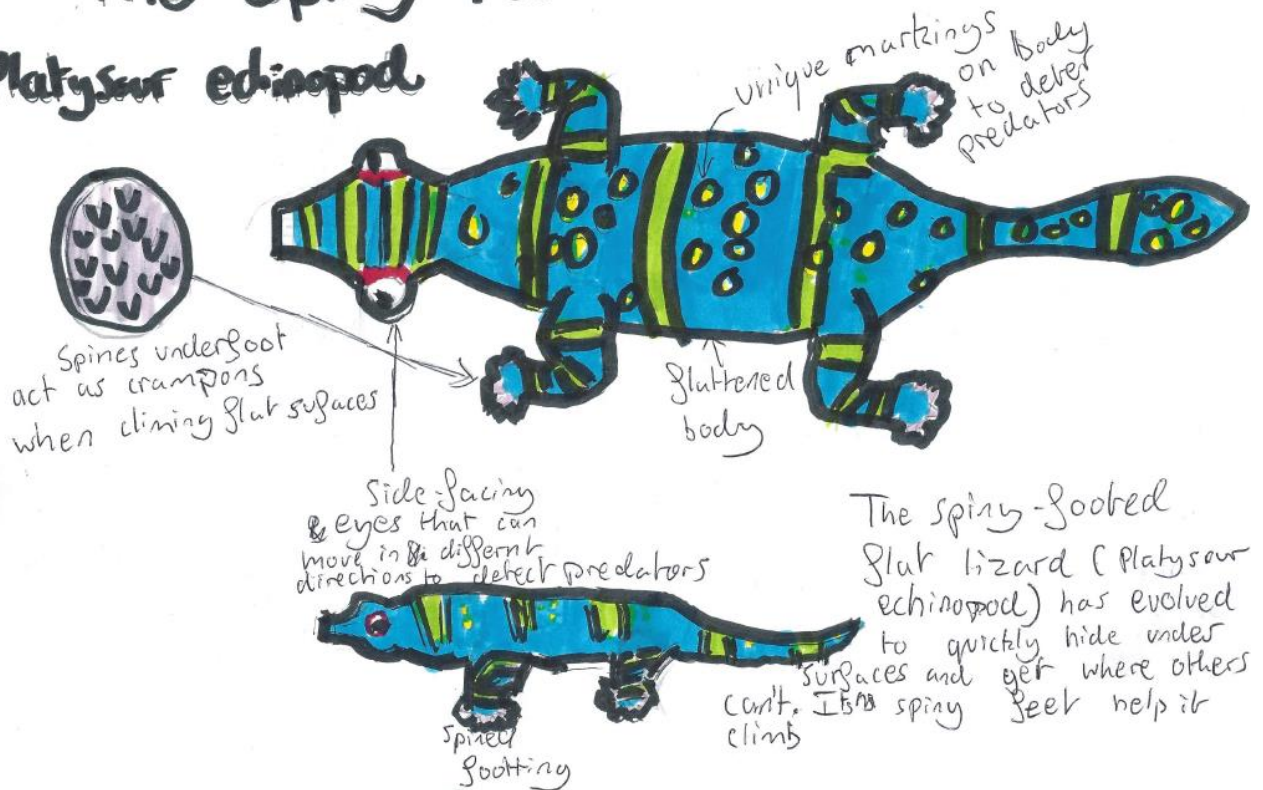 The Spiny
Platysaur echinopod
unique markings
on Body
to deter
predators
Spines underfoot
act as crampons
when climing flat sufaces
flattened
body
Side-facing
eyes that can
move in differnt
directions to detect predators
The spiny-footed
flat lizard (Platysaur
echinopod) has evolved
to quickly hide under
surfaces and get where others
can't. Its spiny feet help it
climb
spined
footting